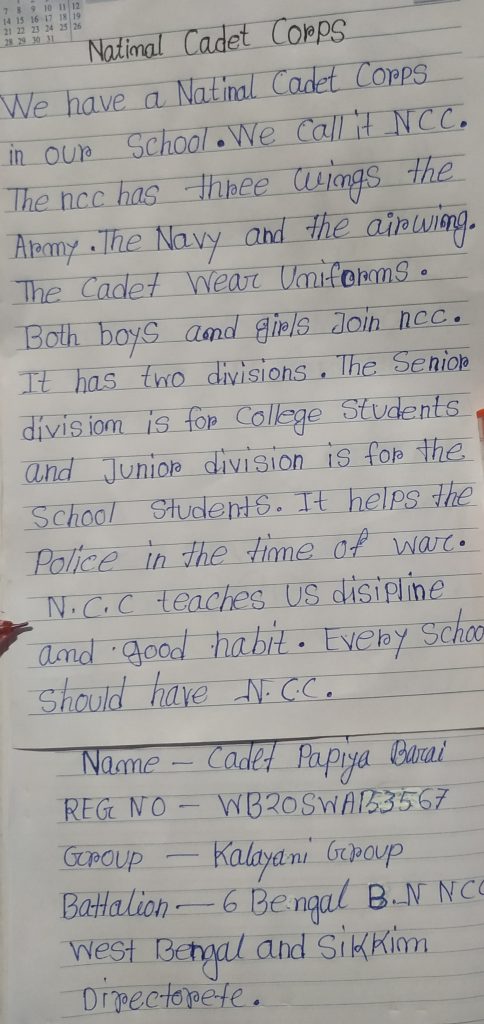 7 8 9 10 11 12
14 15 16 17 18 19
21 22 23 24 25 26
28 29 30 31
Natimal Cadet Corps
We have a Natinal Cadet Corps
in our School. We Call it NCC.
The ncc has three wings the
Aromy. The Navy and the airwimg.
The Cadet Wear Umiforms.
Both boys and girls Join ncc.
It has two divisions. The Senior
divisiom is for College Students
and Junior division is for the
School Students. It helps the
Police in the time of war.
N.C.C teaches us disipline
and good habit. Every Schoo
Should have N.C.C.
Name - Cadet Papiya Barai
REG NO - WB20SWA133567
Group - Kalayani Group
Battalion - 6 Bengal B.N NCC
West Bengal and Sikkim
Directorete.